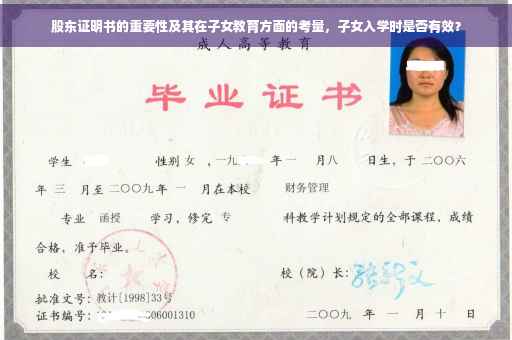 股东证明书的重要性及其在子女教育方面的考量，子女入学时是否有效？
成人高等教育
毕业证书
学生 性别 女 ，一九 年一 月八 日生，于二〇〇六
年 三 月至二〇〇九年 一 月在本校 财务管理
专业 函授 学习，修完 专 科教学计划规定的全部课程，成绩
合格，准予毕业。
校 名： 校（院）长：
批准文号：教计[1998]33号
证书编号： 06001310 二〇〇九 年 一 月 十 日